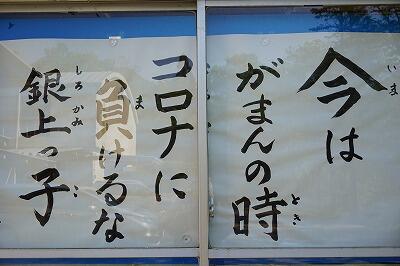 今は
がまんの時
コロナに
負けるな
銀上っ子
いま
とき
ま
しろかみ
こ